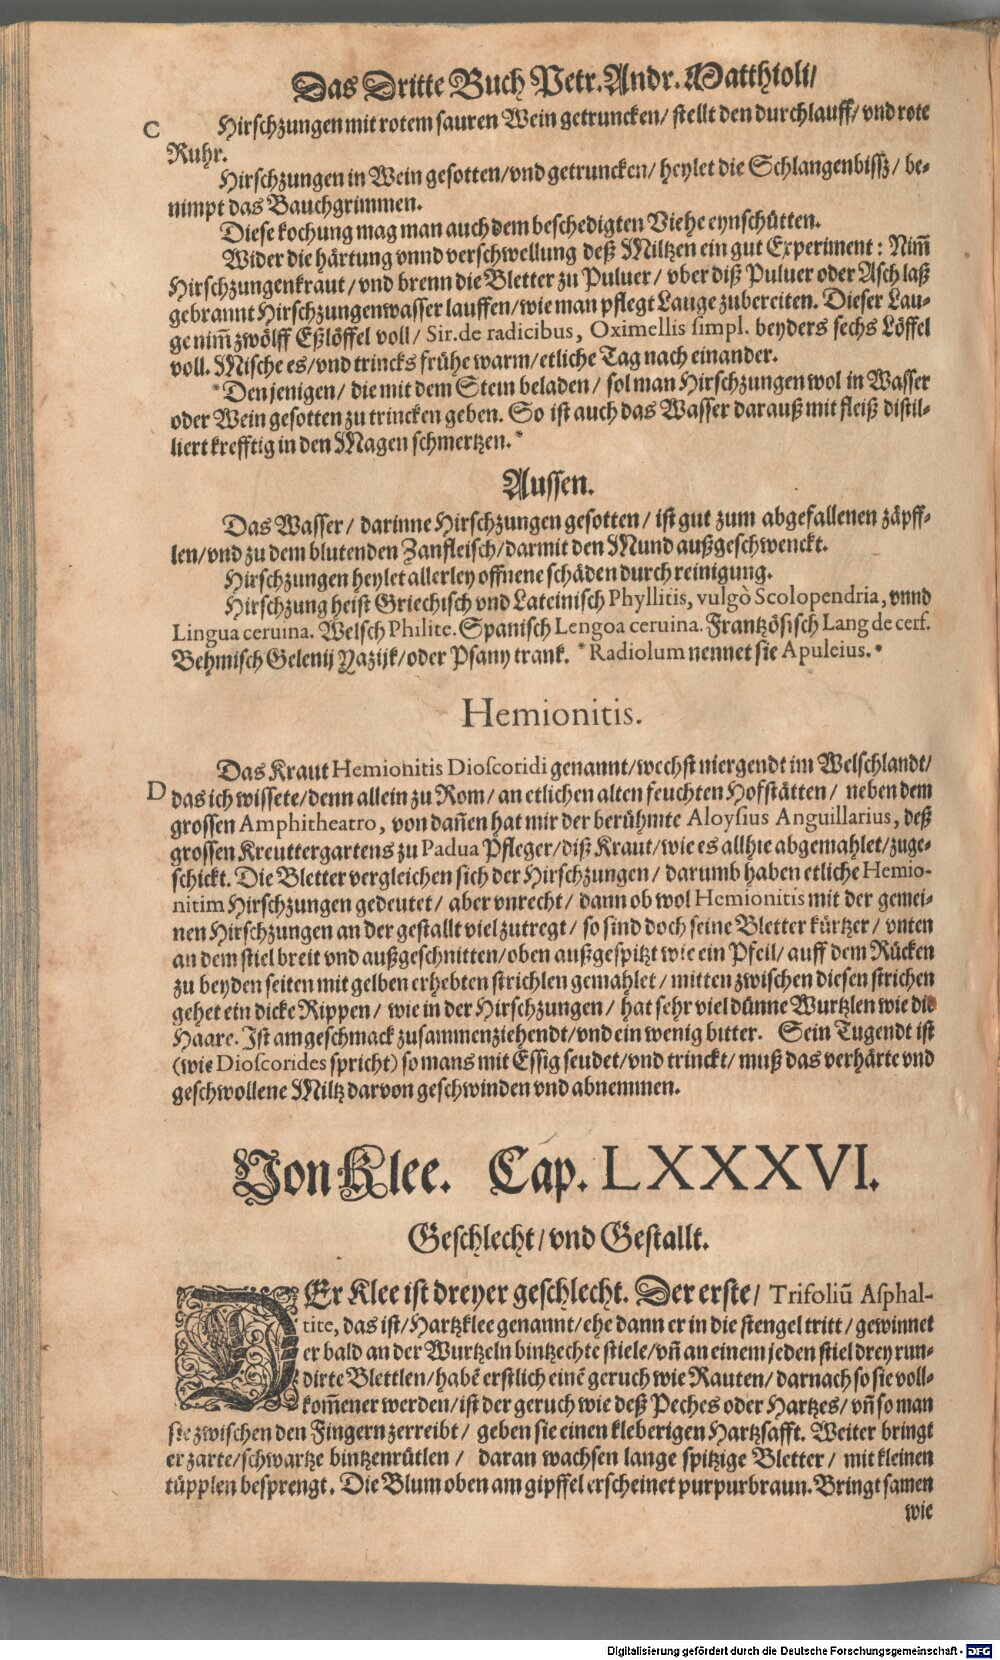 Das Dritte Buch Petr. Andr. Matthioli/
C
Hirschzungen mit rotem sauren Wein getruncken/ stellt den durchlauff/ vnd rote
Ruhr.
Hirschzungen in Wein gesotten/ vnd getruncken/ heylet die Schlangenbissz/ be-
nimpt das Bauchgrimmen.
Diese kochung mag man auch dem beschedigten Viehe eynschütten.
Wider die härtung vnnd verschwellung deß Miltzen ein gut Experiment: Nim̃
Hirschzungenkraut/ vnd brenn die Bletter zu Puluer/ vber diß Puluer oder Asch laß
gebrannt Hirschzungenwasser lauffen/ wie man pflegt Lauge zubereiten. Dieser Lau-
ge nim̃ zwölff Eßlöffel voll/ Sir. de radicibus, Oximellis simpl. beyders sechs Löffel
voll. Mische es/ vnd trincks frühe warm/ etliche Tag nach einander.
*Den jenigen/ die mit dem Stein beladen/ sol man Hirschzungen wol in Wasser
oder Wein gesotten zu trincken geben. So ist auch das Wasser darauß mit fleiß distil-
liert krefftig in den Magen schmertzen.*
Aussen.
Das Wasser/ darinne Hirschzungen gesotten/ ist gut zum abgefallenen zäpff-
len/ vnd zu dem blutenden Zanfleisch/ darmit den Mund außgeschwenckt.
Hirschzungen heylet allerley offnene schäden durch reinigung.
Hirschzung heist Griechisch vnd Lateinisch Phyllitis, vulgò Scolopendria, vnnd
Lingua ceruina. Welsch Philite. Spanisch Lengoa ceruina. Frantzösisch Lang de cerf.
Behmisch Gelenij Yazijk/ oder Psany trank. *Radiolum nennet sie Apuleius.*
Hemionitis.
Das Kraut Hemionitis Dioscoridi genannt/ wechst niergendt im Welschlandt/
D
das ich wissete/ denn allein zu Rom/ an etlichen alten feuchten Hofstätten/ neben dem
grossen Amphitheatro, von dañen hat mir der berühmte Aloysius Anguillarius, deß
grossen Kreuttergartens zu Padua Pfleger/ diß Kraut/ wie es allhie abgemahlet/ zuge-
schickt. Die Bletter vergleichen sich der Hirschzungen/ darumb haben etliche Hemio-
nitim Hirschzungen gedeutet/ aber vnrecht/ dann ob wol Hemionitis mit der gemei-
nen Hirschzungen an der gestallt viel zutregt/ so sind doch seine Bletter kürtzer/ vnten
an dem stiel breit vnd außgeschnitten/ oben außgespitzt wie ein Pfeil/ auff dem Rücken
zu beyden seiten mit gelben erhebten strichlen gemahlet/ mitten zwischen diesen strichen
gehet ein dicke Rippen/ wie in der Hirschzungen/ hat sehr viel dünne Wurtzlen wie die
Haare. Ist am geschmack zusammenziehendt/ vnd ein wenig bitter. Sein Tugendt ist
(wie Dioscorides spricht) so mans mit Essig seudet/ vnd trinckt/ muß das verhärte vnd
geschwollene Miltz darvon geschwinden vnd abnemmen.
Von Klee. Cap. LXXXVI.
Geschlecht/ vnd Gestallt.
DEr Klee ist dreyer geschlecht. Der erste/ Trifoliũ Asphal-
tite, das ist/ Hartzklee genannt/ ehe dann er in die stengel tritt/ gewinnet
er bald an der Wurtzeln bintzechte stiele/ vñ an einem jeden stiel drey run-
dirte Blettlen/ habẽ erstlich einẽ geruch wie Rauten/ darnach so sie voll-
kom̃ener werden/ ist der geruch wie deß Peches oder Hartzes/ vñ so man
sie zwischen den Fingern zerreibt/ geben sie einen kleberigen Hartzsafft. Weiter bringt
er zarte/ schwartze bintzenrütlen/ daran wachsen lange spitzige Bletter/ mit kleinen
tüpplen besprengt. Die Blum oben am gipffel erscheinet purpurbraun. Bringt samen
wie
Digitalisierung gefördert durch die Deutsche Forschungsgemeinschaft - DFG